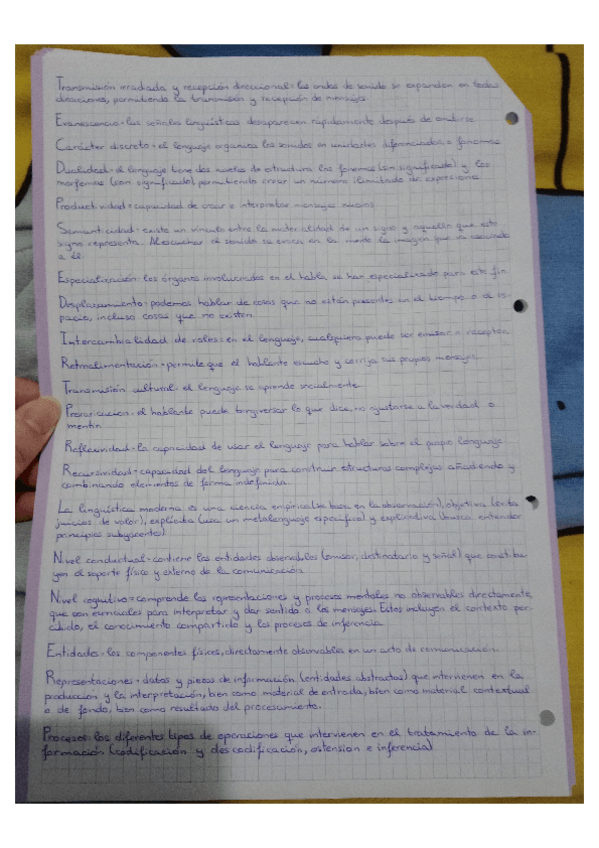 Transmisión irradiada y recepción direccional: las ondas de sonido se expanden en todas
direcciones, permitiendo la transmisión y recepción de mensajes
Evanescencia: las señales lingüísticas desaparecen rápidamente después de emitirse.
Carácter discreto: el lenguaje organiza los sonidos en unidades diferenciadas o fonemas
Dualidad: el lenguaje tiene dos niveles de estructura los fonemas (sin significado) y los
morfemas (con significado) permitiendo crear un número ilimitado de expresiones
Productividad: capacidad de crear e interpretar mensajes nuevos
Semanticidad: existe un vínculo entre la materialidad de un signo y aquello que este
signo representa. Al escuchar el sonido se evoca en la mente la imagen que va asociada
a él.
Especialización: los órganos involucrados en el habla se han especializado para este fin.
Desplazamiento: podemos hablar de cosas que no están presentes en el tiempo o el es-
pacio, incluso cosas que no existen.
Intercambialidad de roles: en el lenguaje, cualquiera puede ser emisor o receptor.
Retroalimentación: permite que el hablante escuche y corrija sus propios mensajes
Transmisión cultural: el lenguaje se aprende socialmente
Prevaricación: el hablante puede tergiversar lo que dice, no ajustarse a la verdad o
mentir.
Reflexividad: la capacidad de usar el lenguaje para hablar sobre el propio lenguaje
Recursividad: capacidad del lenguaje para construir estructuras complejas añadiendo y
combinando elementos de forma indefinida.
La lingüística moderna es una ciencia empírica (se basa en la observación), objetiva (evita
juicios de valor), explícita (usa un metalenguaje específico) y explicativa (busca entender
principios subyacentes)
Nivel conductual: contiene las entidades observables (emisor, destinatario y señal) que constitu-
yen el soporte físico y externo de la comunicación.
Nivel cognitivo: comprende las representaciones y procesos mentales no observables directamente,
que son esenciales para interpretar y dar sentido a los mensajes. Estos incluyen el contexto per-
cibido, el conocimiento compartido y los procesos de inferencia
Entidades: los componentes físicos, directamente observables en un acto de comunicación.
Representaciones: datos y piezas de información (entidades abstractas) que intervienen en la
producción y la interpretación, bien como material de entrada, bien como material contextual
o de fondo, bien como resultado del procesamiento.
Procesos: los diferentes tipos de operaciones que intervienen en el tratamiento de la in-
formación (codificación y descodificación, ostensión e inferencia)